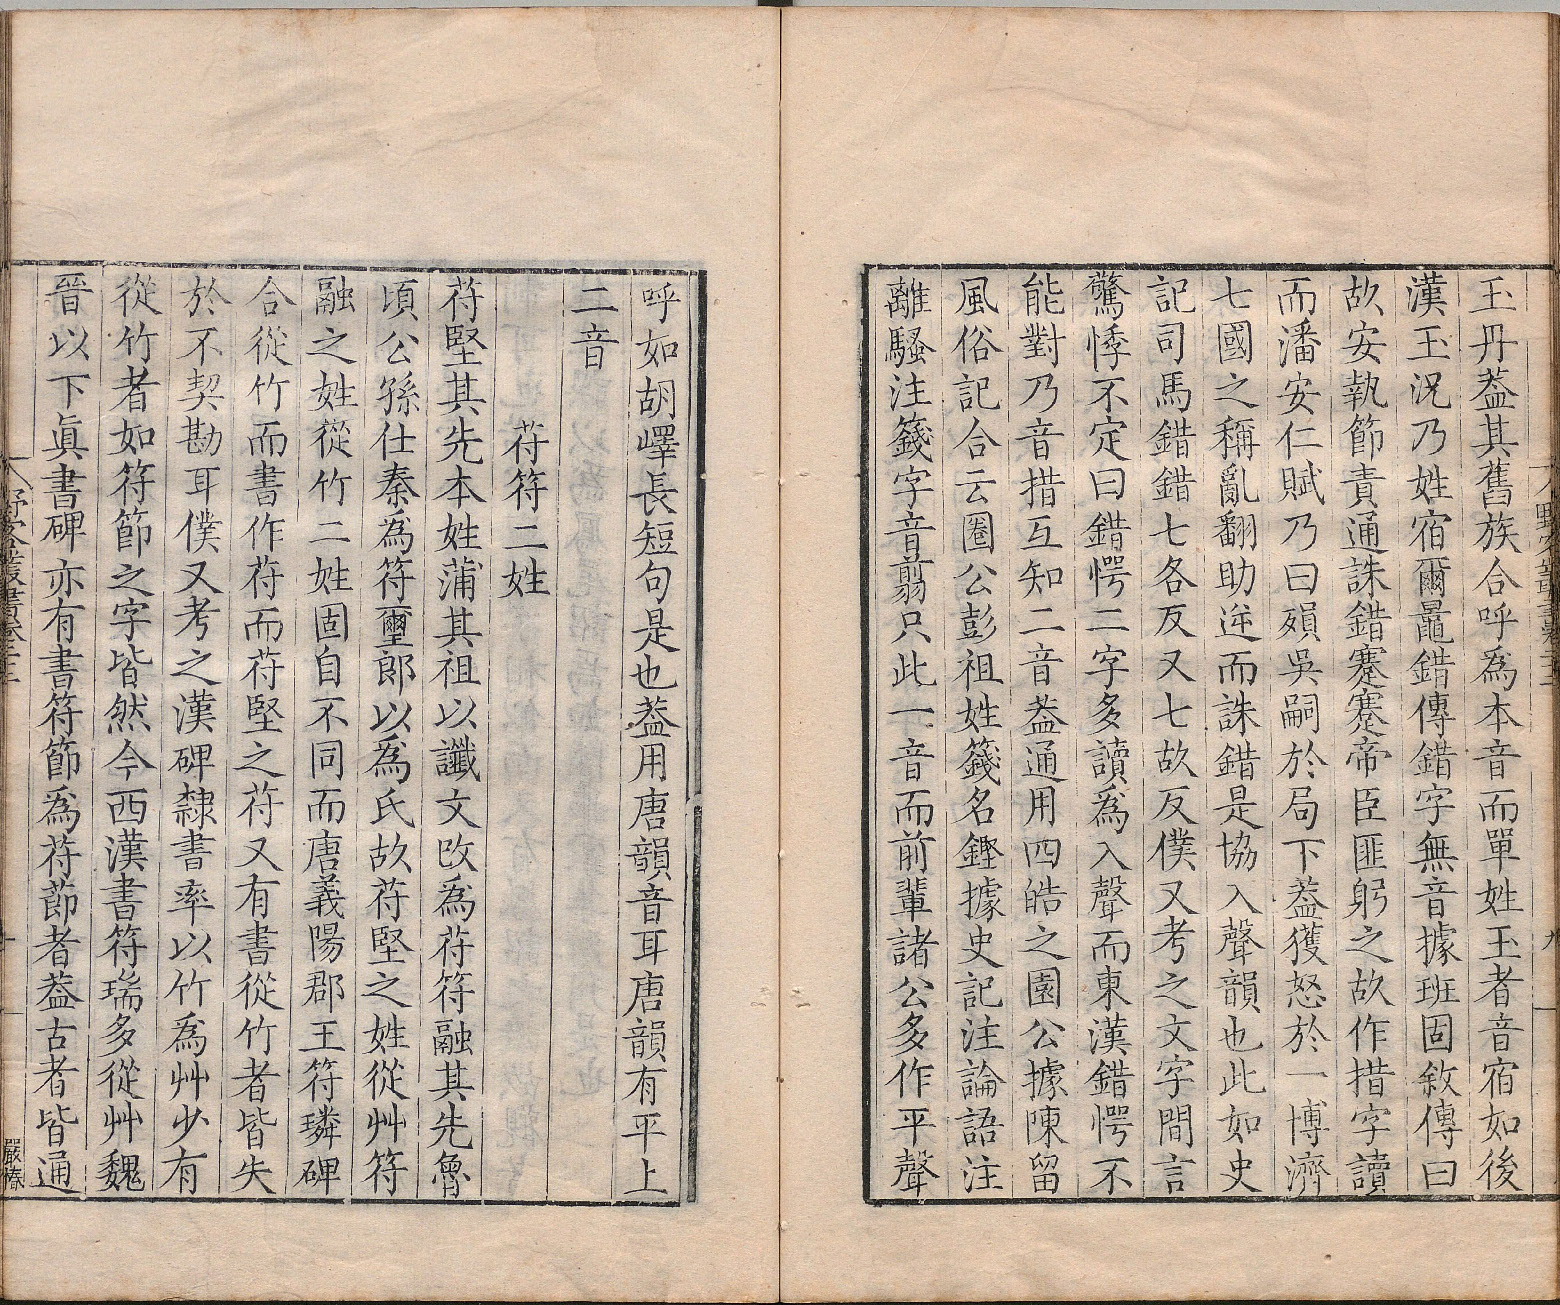 玉丹蓋其舊族合呼爲本音而單姓玉者音宿如後
漢玉況乃姓宿爾鼂錯傳錯字無音據班固敘傳曰
故安執節責通誅錯蹇蹇帝臣匪躬之故作措字讀
而潘安仁賦乃曰殞吳嗣於局下蓋獲怒於一博濟
七國之稱亂翻助逆而誅錯是協入聲韻也此如史
記司馬錯錯七各反又七故反僕又考之文字間言
驚悸不定曰錯愕二字多讀爲入聲而東漢錯愕不
能對乃音措互知二音蓋通用四皓之園公據陳留
風俗記合云圈公彭祖姓籛名鏗據史記注論語注
離騷注籛字音翦只此一音而前輩諸公多作平聲
呼如胡嶧長短句是也蓋用唐韻音耳唐韻有平上
二音
苻符二姓
苻堅其先本姓蒲其祖以讖文改爲苻符融其先魯
頃公孫仕秦爲符璽郎以爲氏故苻堅之姓從艸符
融之姓從竹二姓固自不同而唐義陽郡王符璘碑
合從竹而書作苻而苻堅之苻又有書從竹者皆失
於不契勘耳僕又考之漢碑隸書率以竹爲艸少有
從竹者如符節之字皆然今西漢書符瑞多從艸魏
晉以下眞書碑亦有書符節爲苻莭者蓋古者皆通
野客叢書卷二十
九
嚴椿